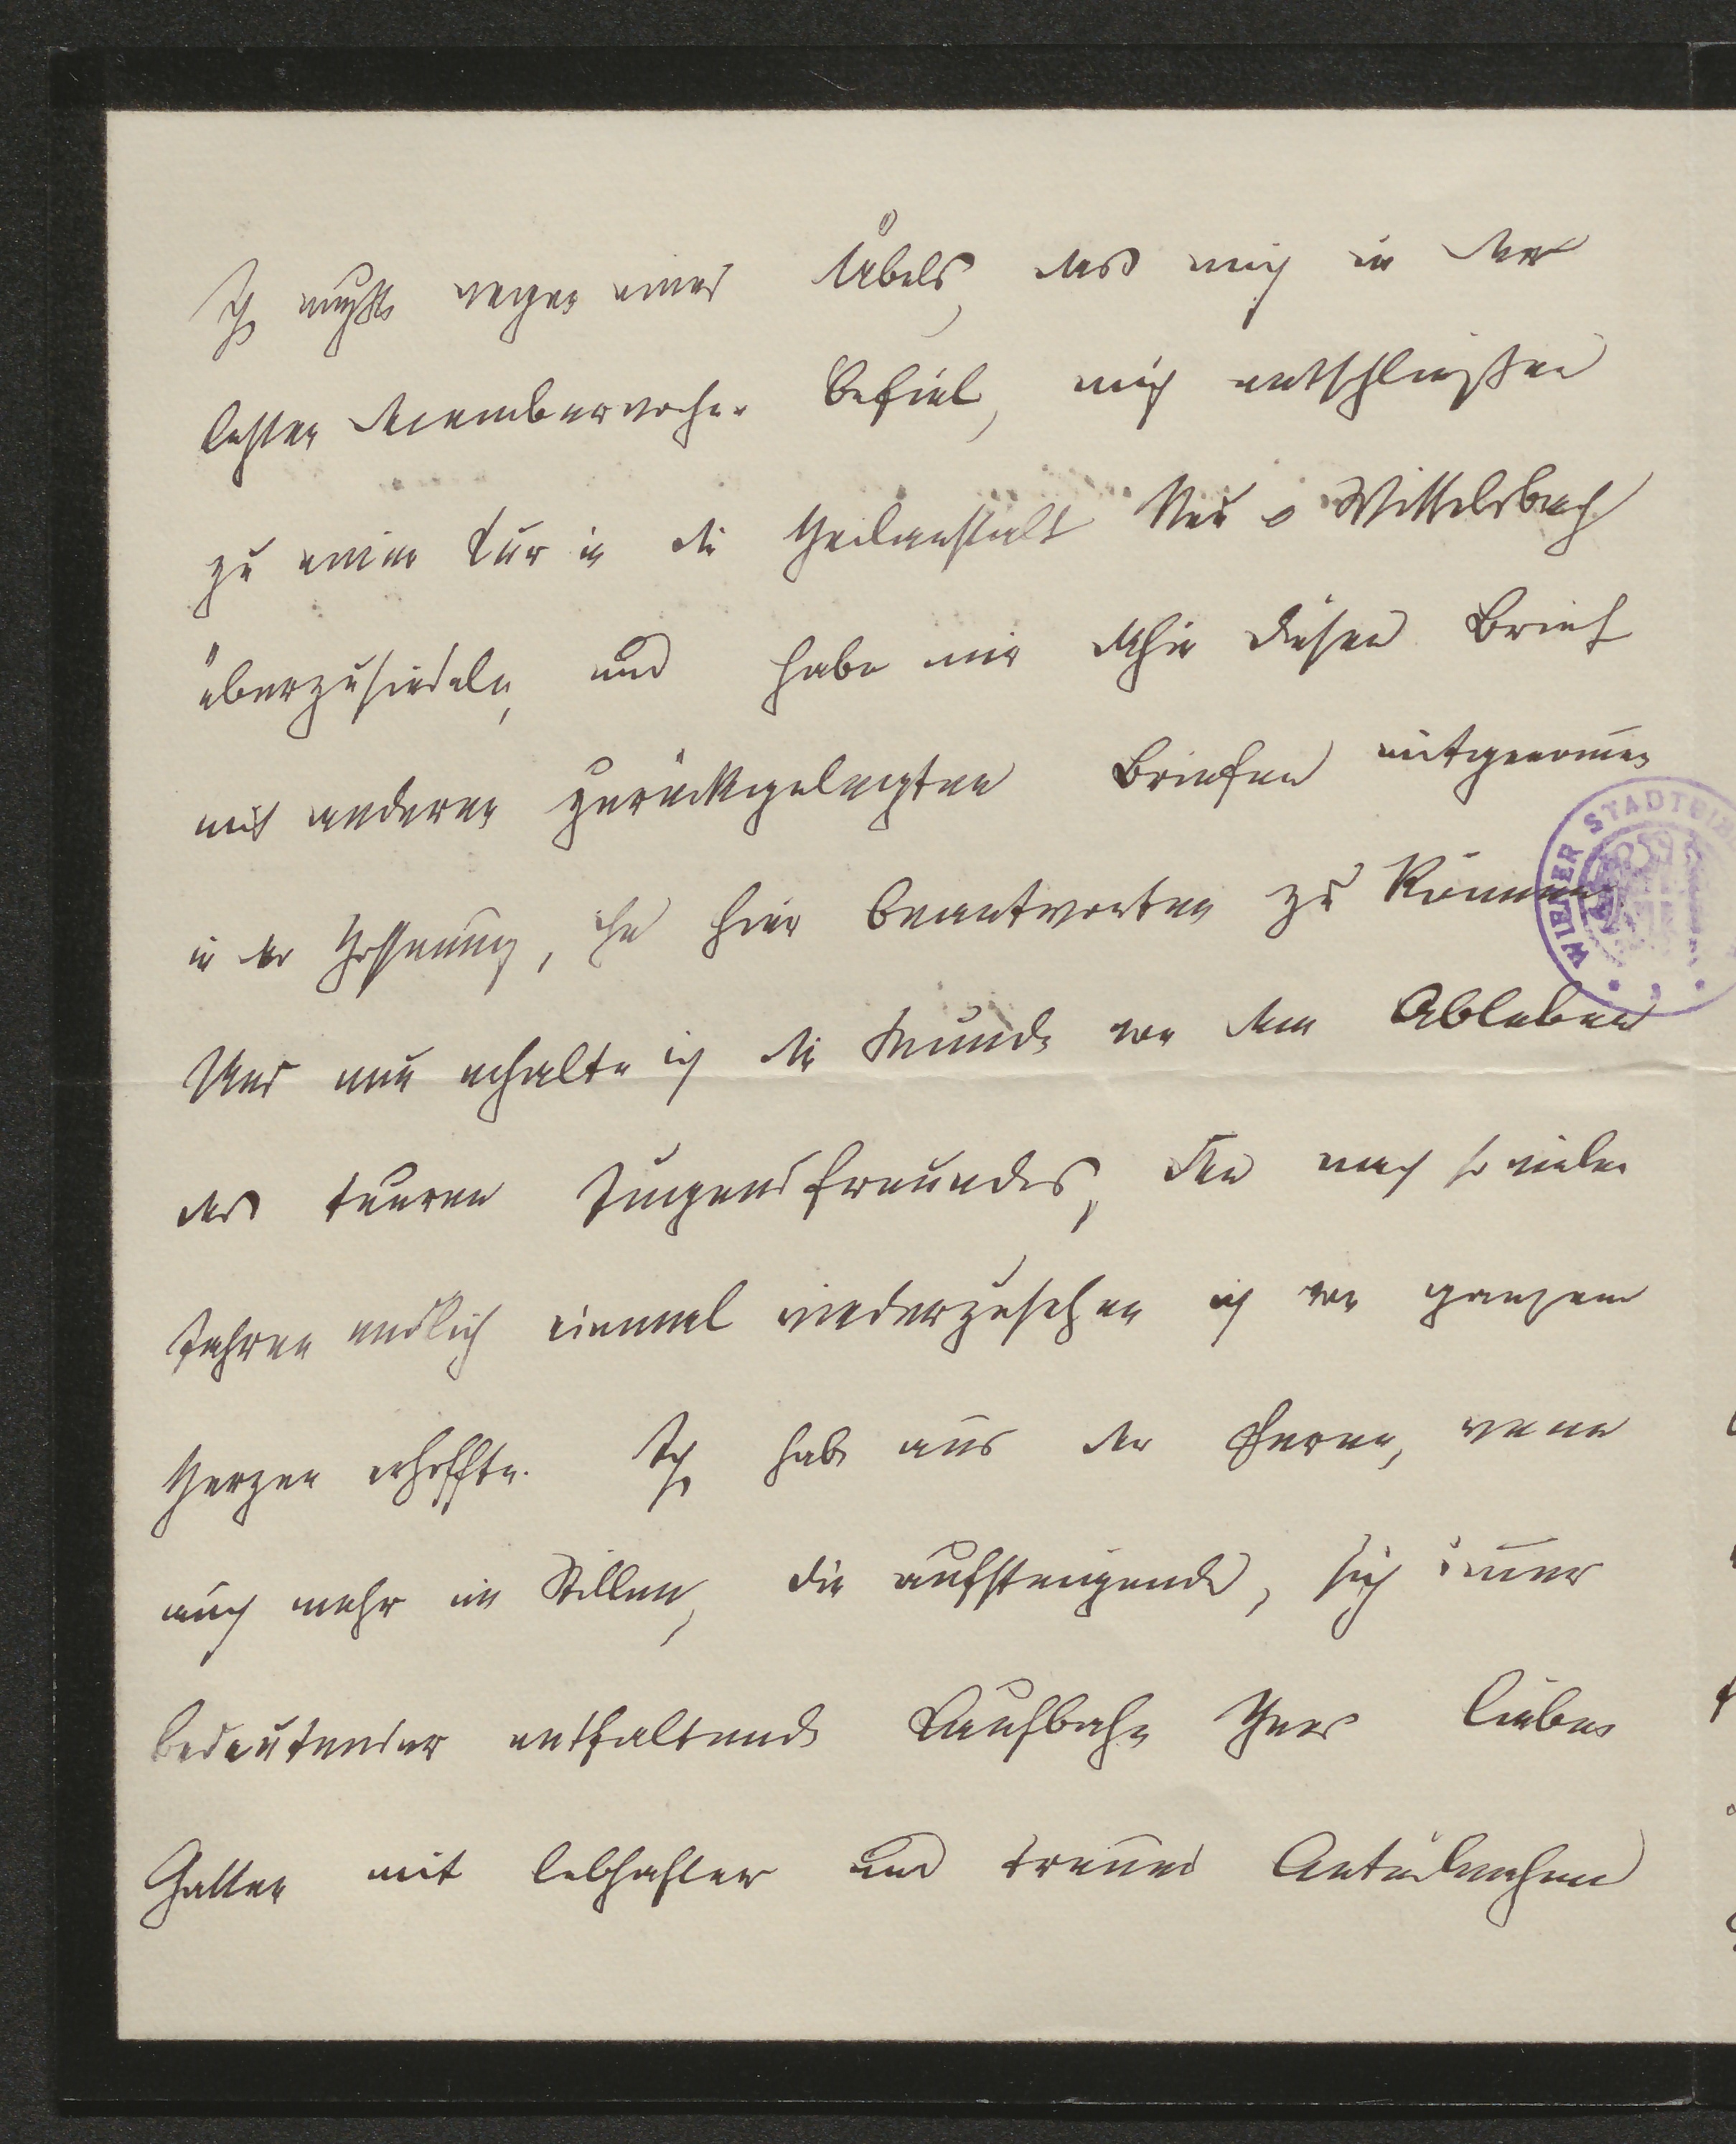 Ich mußte wegen eines Übels, das mich in der
letzten Decemberwoche befiel, mich entschließen
zu einer Kur in die Heilanstalt Neu-Wittelsbach
überzusiedeln, und habe mir dahin diesen Brief
mit anderen zurückgelegten Briefen mitgenom̅en
in der Hoffnung, ihn hier beantworten zu können.
Und nun erhalte ich die Kunde von dem Ableben
des teuren Jugendfreundes, den nach so vielen
Jahren endlich einmal wiederzusehen ich von ganzem
Herzen erhoffte. Ich habe aus der Ferne, wenn
auch mehr im Stillen, die aufsteigende, sich im̅er
bedeutender entfaltende Laufbahn Ihres lieben
Gatten mit lebhafter und treuer Anteilnahme
WIENER STADTBIB